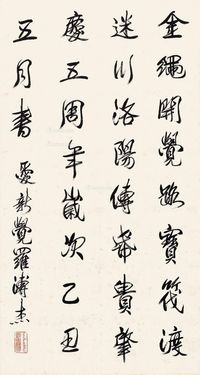 金繩開覺路寶筏渡
迷川洛陽傳希貴肇
慶五周年歲次乙丑
五月書 愛新覺羅溥杰